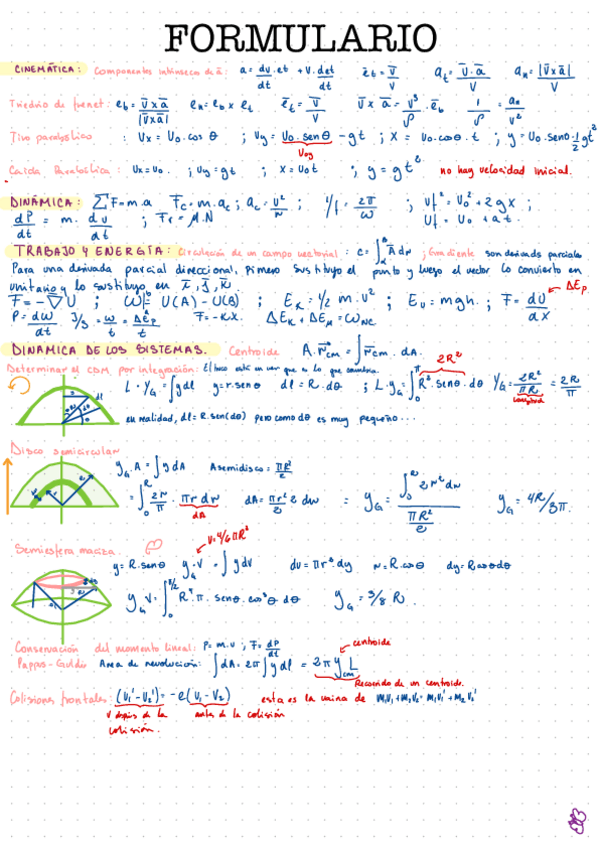 FORMULARIO
CINEMÁTICA: Componentes intrínseco de ā: a = dv/dt · et + v · det/dt   ēt = v̄/V   at = v̄·ā/V   an = |v̄xā|/V
Triedro de frenet: ēb = v̄xā/|v̄xā|   en = eb x et   ēt = v̄/V   v̄ x ā = v³/ρ · ēb   1/ρ = an/v²
Tiro parabólico : Vx = Vo · cos θ ; Vy = Vo · sen θ - gt ; x = Vo · cos θ · t ; y = Vo · senθ · 1/2 gt²
Voy
Caída Parabólica : Vx = Vo. ; Vy = gt ; x = Vot ; y = gt² no hay velocidad inicial.
DINÁMICA: ΣF = m.a   Fc = m.ac ; ac = v²/r ; 1/f = 2π/ω ; Vf² = Vo² + 2gx ;
dP/dt = m. dv/dt ; Fr = μ.N   Vf = Vo + at.
TRABAJO Y ENERGÍA: Circulación de un campo vectorial : C = ∫ Ā dr ; Gradiente son derivads parciales
Para una derivada parcial direccional, primero sustituyo el punto y luego el vector lo convierto en
unitario y lo sustituyo en ī, j̄, k̄.
F = -∇U ; W = U(A) - U(B) ; Ek = 1/2 m.v² ; Eu = mgh. ; F = dU/dx → ΔEp
P = dW/dt   J/s = ω/t = ΔEp/t   F = -K.x.   ΔEk + ΔEm = WNC
DINAMICA DE LOS SISTEMAS. Centroide A. r̄cm = ∫ r̄cm. dA.
2R²
Determinar el CDM por integración: El truco está en ver que es lo que cambia.
L · YG = ∫ydl   y = r.senθ   dl = R.dθ ; L.yG = ∫₀^π R².senθ.dθ   YG = 2R²/πR = 2R/π
Longitud
en realidad, dl = R.sen(dθ) pero como dθ es muy pequeño...
Disco semicircular
yG.A = ∫y dA   Asemidisco = πR²/2
= ∫₀^R 2r/π · πr dr   dA = πr²/2 2 dr = yG = ∫₀^R 2r² dr / πR²/2   yG = 4R/3π.
dA
Semiesfera maciza.   V = 4/6 πR³
y = R.senθ   yG.V = ∫ydV   dV = πr² dy   r = R.cosθ   dy = Rcosθdθ
yG V = ∫₀^π/2 R⁴.π. senθ.cos³θ dθ   yG = 3/8 R.
Conservación del momento lineal: P = m.v ; F = dP/dt   centroide
Pappus-Guldin Area de revolución: ∫dA = 2π∫y dl = 2π ycm L
Recorrido de un centroide.
Colisiones frontales: (V1'-V2') = -e(V1-V2)   esta es la vaina de m1V1+m2V2 = m1V1'+m2V2'
v depúes de la   antes de la colisión
colisión.